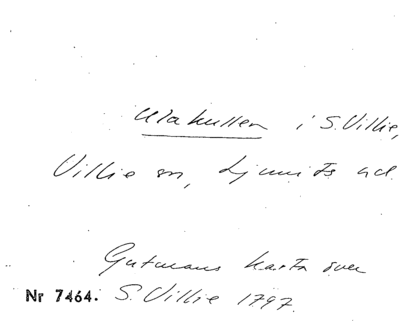 Ulakullen i S. Villie,
Villie sn, Ljunits hd.
Gutmans karta över
Nr 7464. S. Villie 1797.